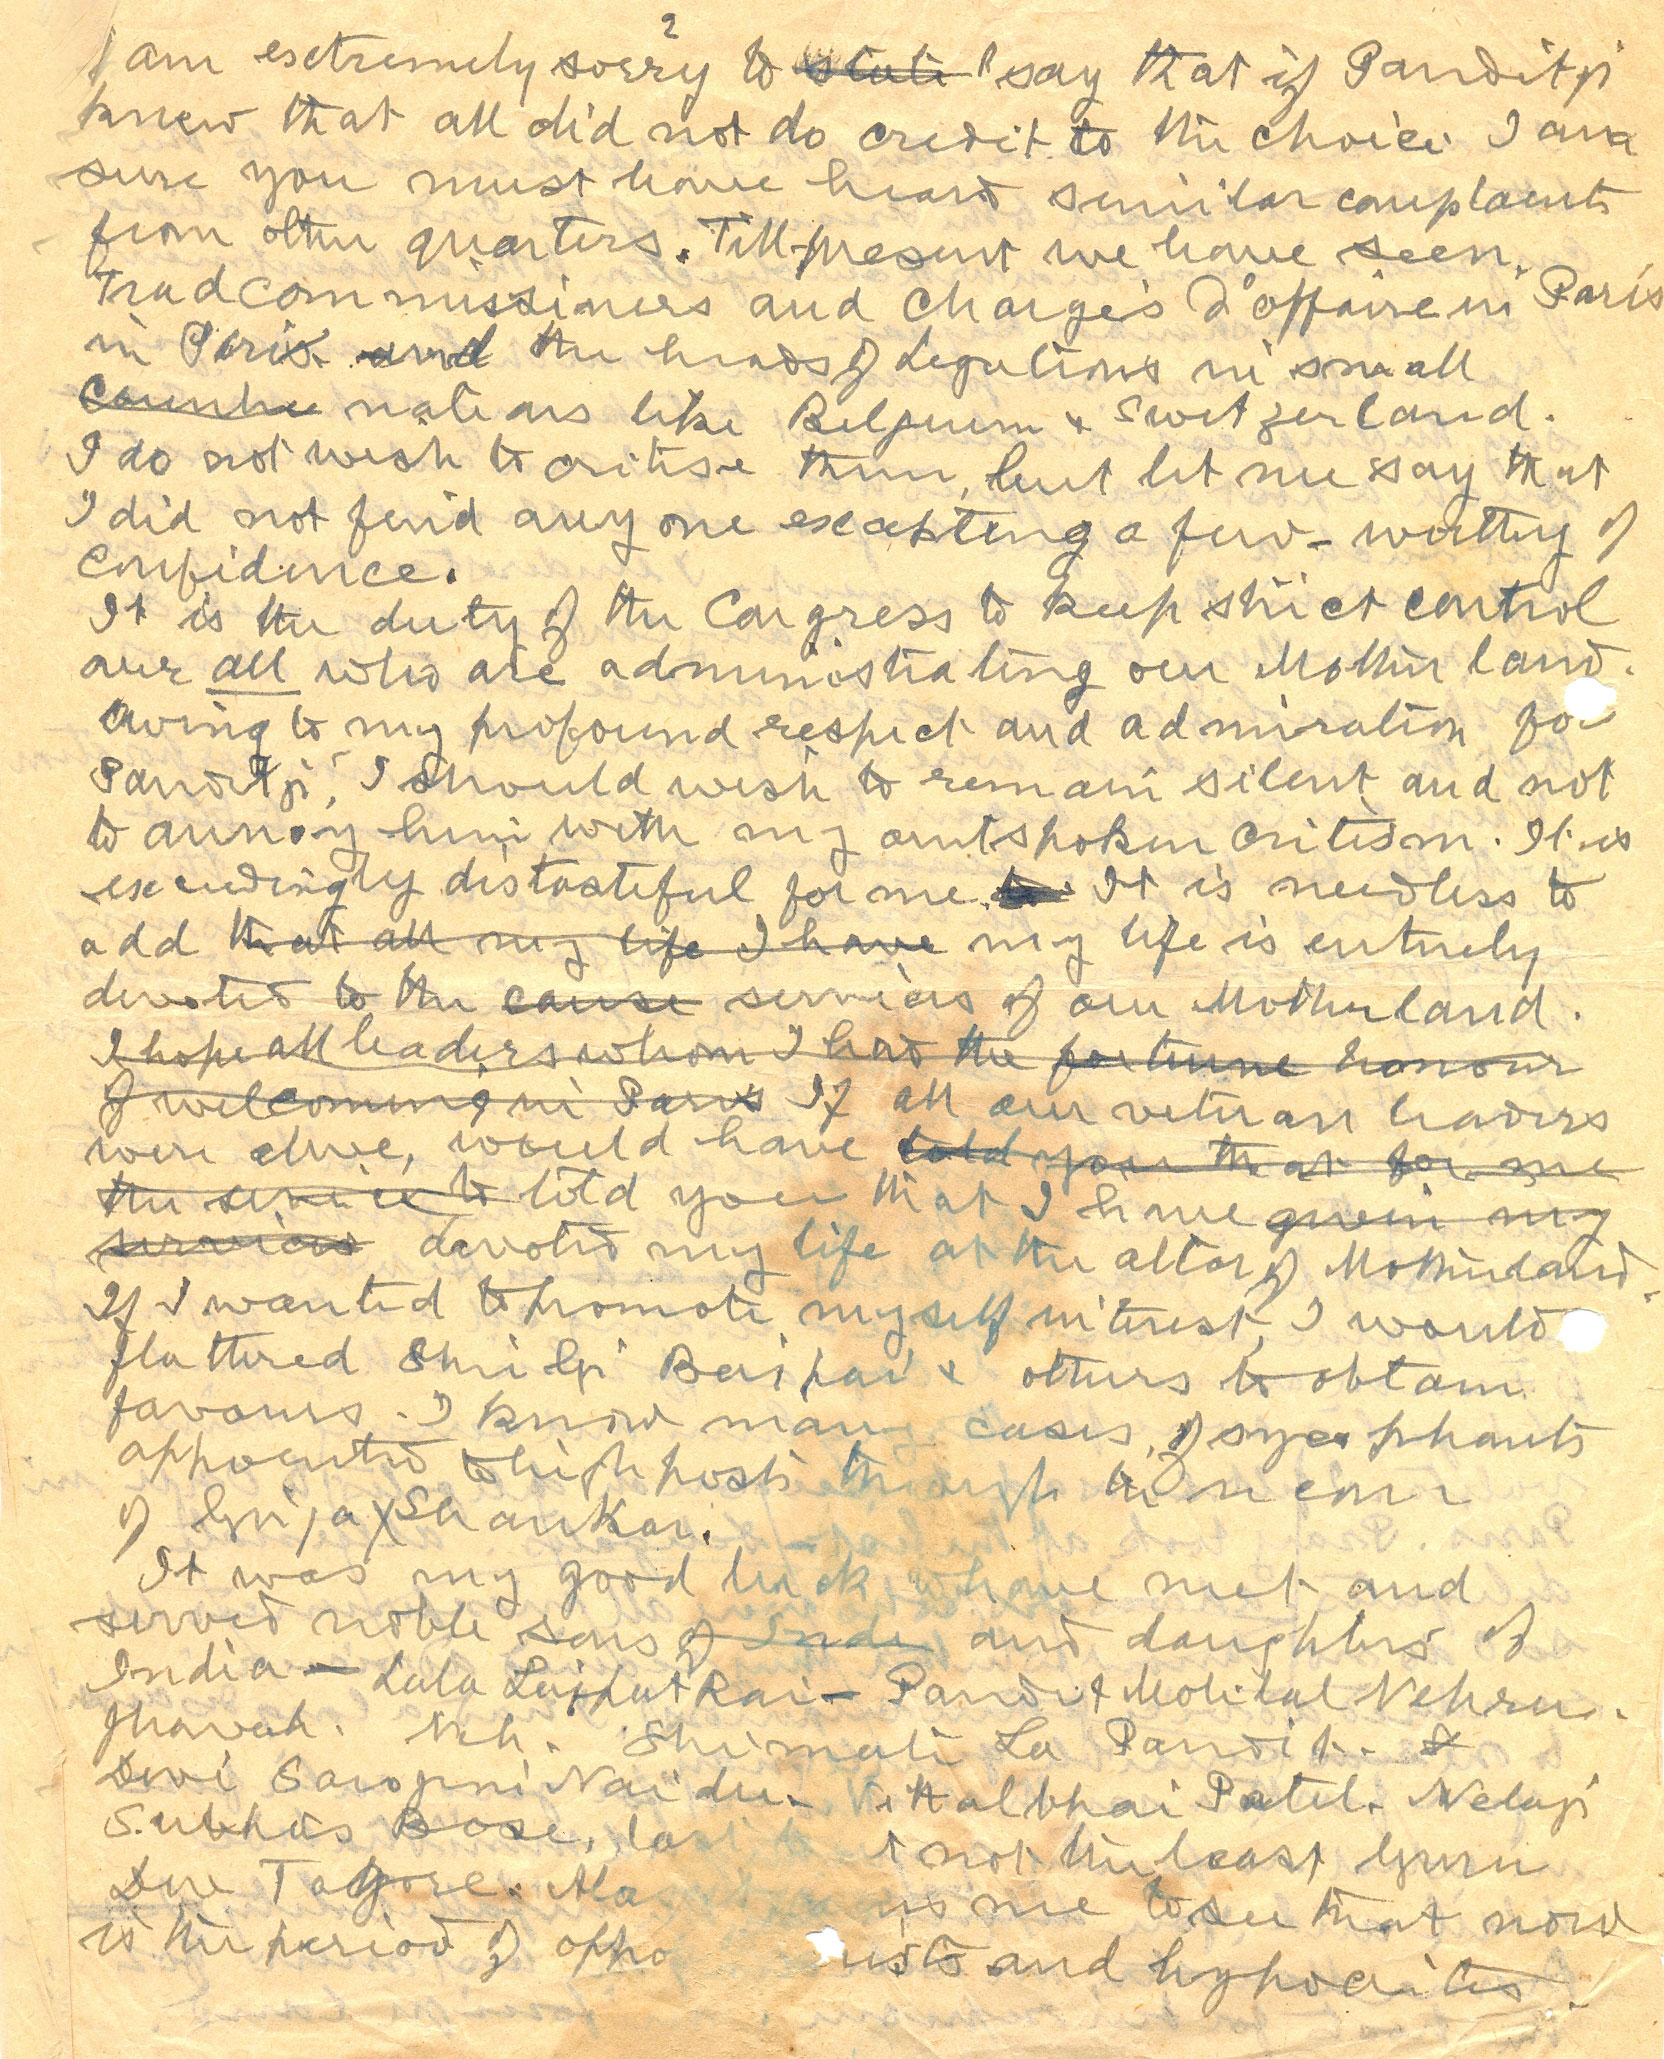 2
I am exctremely sorry to state say that if Panditji
knew that all did not do credit to the choice. I am
sure you must have heard similar complaents
from other quarters. Till present we have seen.
Trad commissiners and chargés d'affaire in Paris
in Paris and the heads of Legations in small
Countrie nations like Belgium & Switzerland.
I do not wish to critise them, but let me say that
I did not find any one excepting a few - worthy of
Confidence.
It is the duty of the Congress to keep strict control
over all who are administrating our Mother land.
Owing to my profound respect and admiration for
Panditji, I should wish to remain silent and not
to annoy him with my outspoken critism. It is
exceedingly distasteful for me. to It is needless to
add that all my life I have my life is entirely
devoted to the cause services of our Motherland.
I hope all leaders whom I had the fortune honour
of welcoming in Paris If all our veteran leaders
were alive, would have told you that for me
the service to told you that I have given my
services devoted my life at the altar of Motherland.
If I wanted to promote my self interest, I would
flattered Shri Bajpai & others to obtain
favours. I know many cases of sycophants
appointed to high posts through the
of Girja Shankar.
It was my good luck, who have met and
served noble sons of Indi and daughters of
India - Lala Lajpat Rai - Pandit Motilal Nehru.
Jhawah. Neh. Shrimati La Pandit. &
Devi Sarojini Naidu. Vittalbhai Patel. Netaji
Subhas Bose, last not the least Guru
Deve Tagore. me to see that now
is the period of and hypocrites.